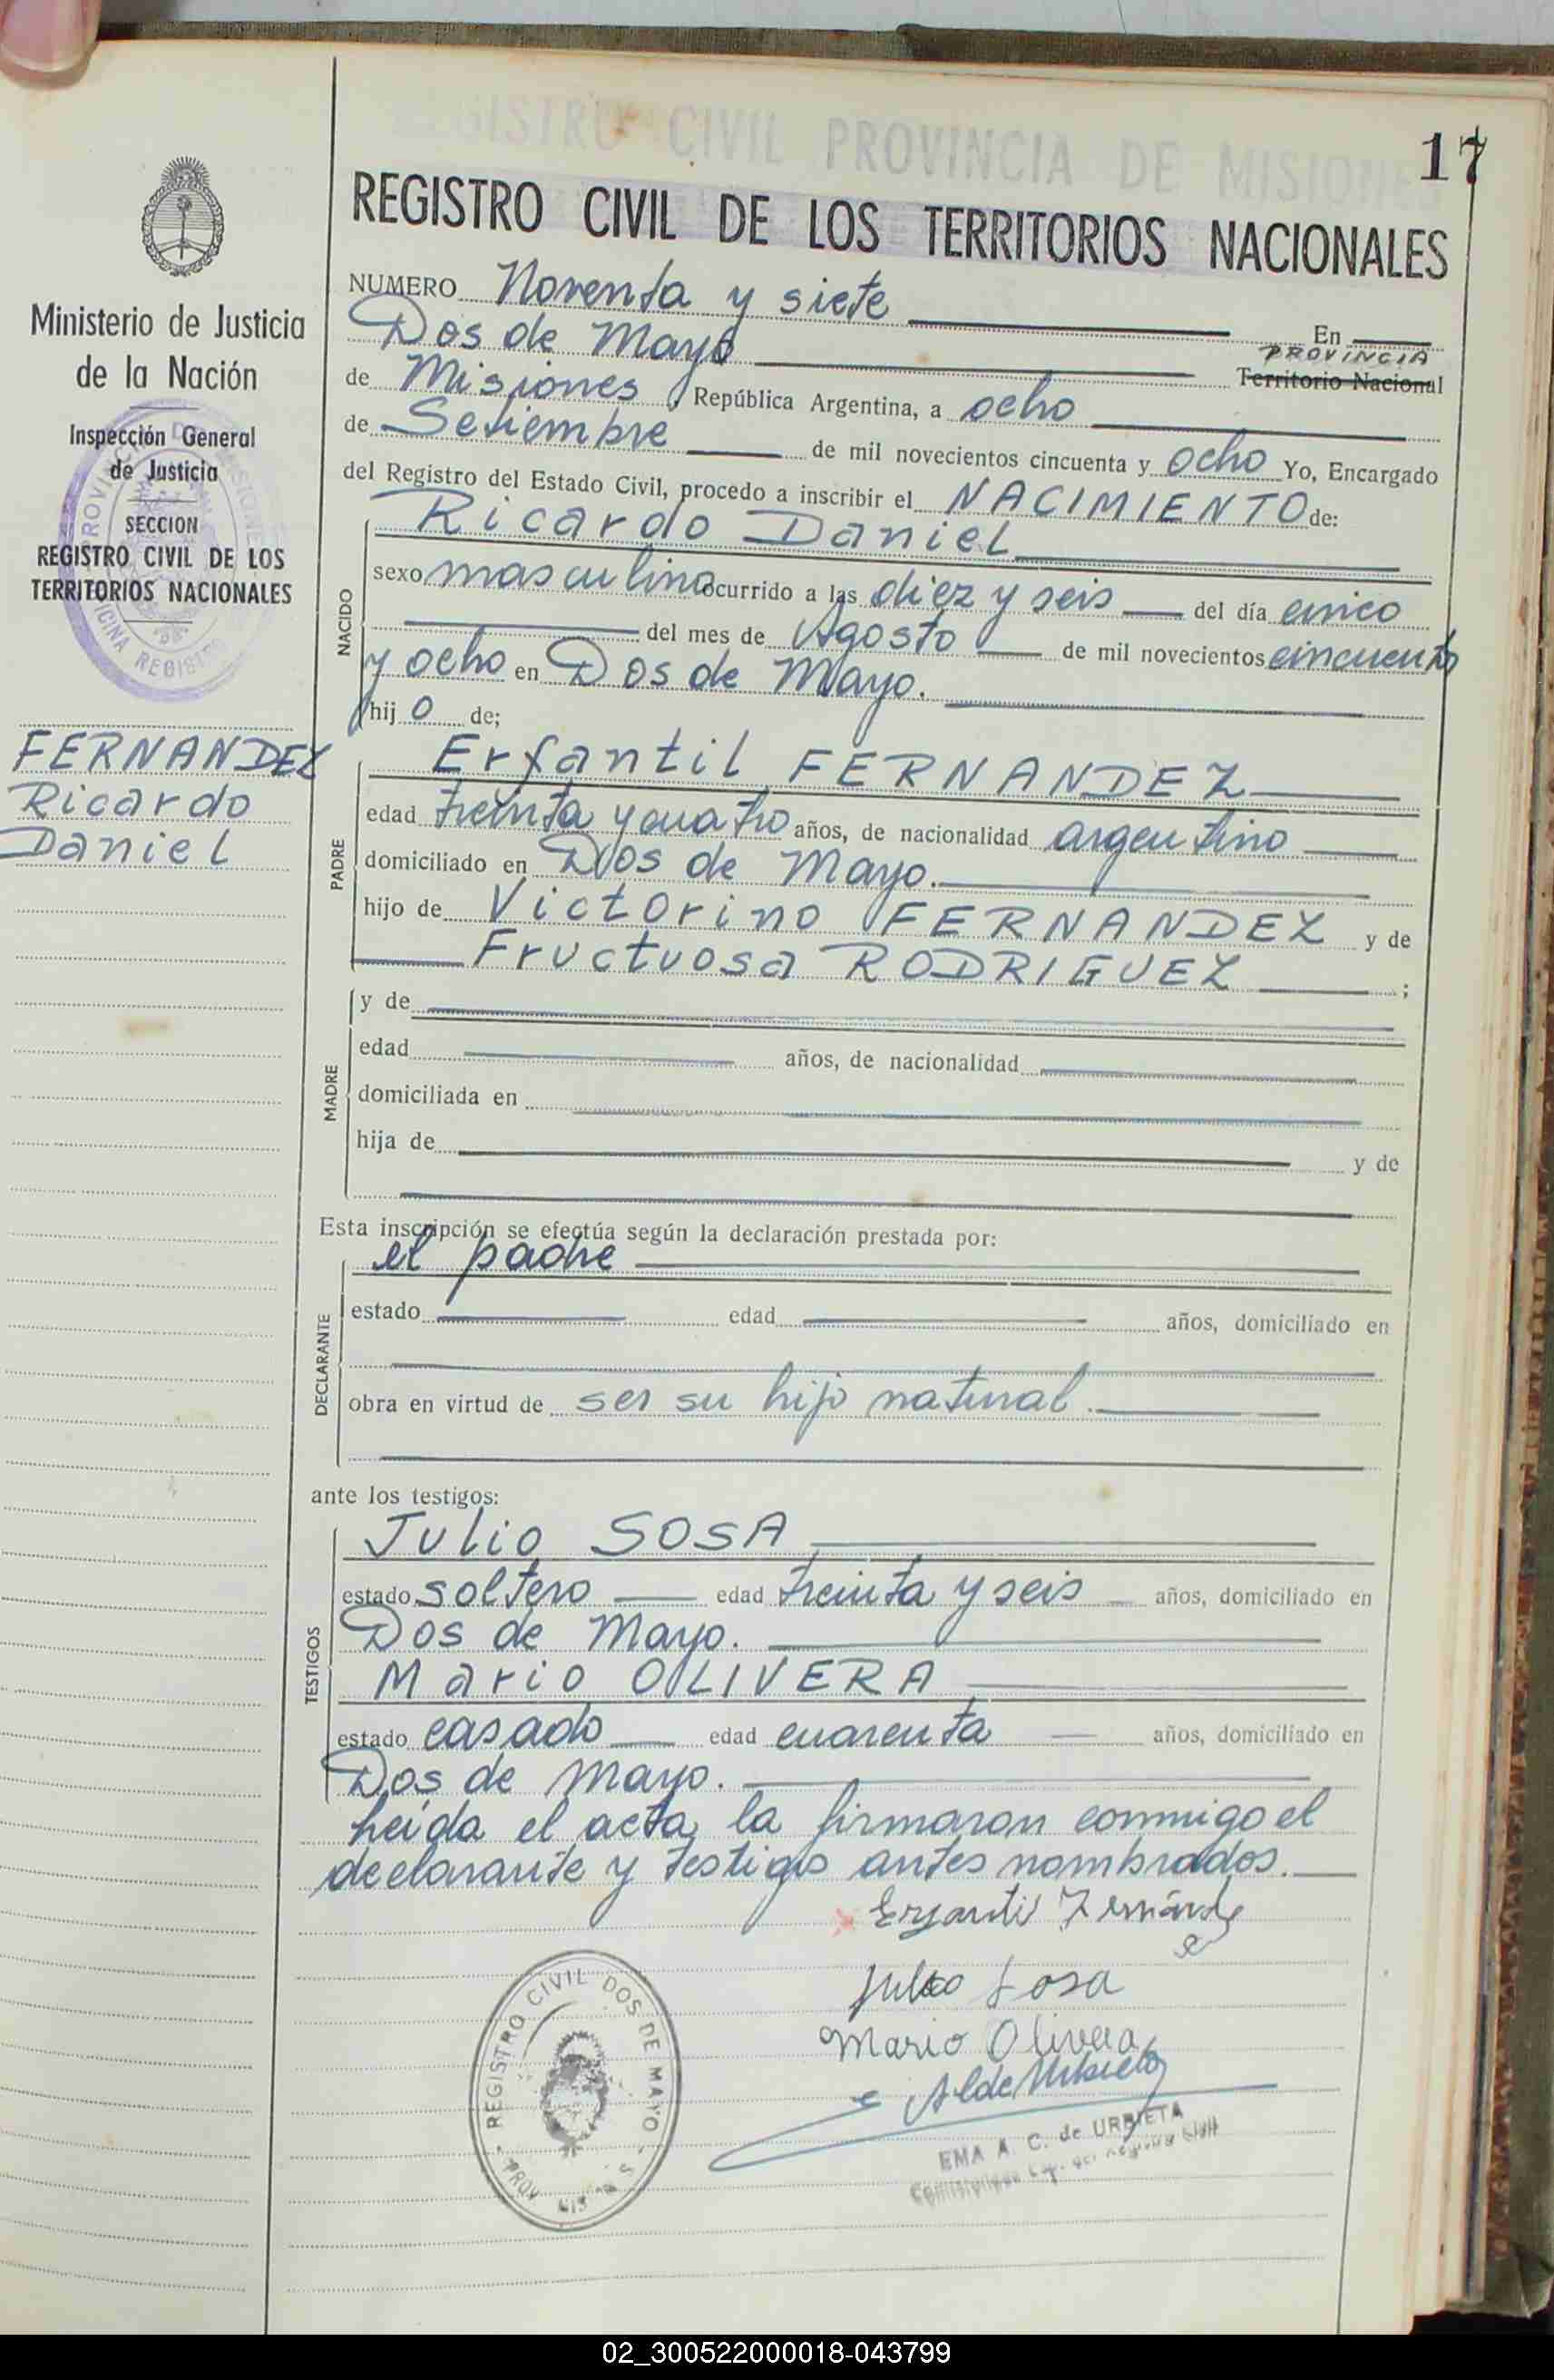 REGISTRO CIVIL PROVINCIA DE MISIONES
17
REGISTRO CIVIL DE LOS TERRITORIOS NACIONALES
Ministerio de Justicia
de la Nación
Inspección General
de Justicia
SECCION
REGISTRO CIVIL DE LOS
TERRITORIOS NACIONALES
FERNANDEZ
Ricardo
Daniel
NUMERO Noventa y siete En
Dos de Mayo PROVINCIA
de Misiones, República Argentina, a ocho Territorio Nacional
de Setiembre de mil novecientos cincuenta y ocho Yo, Encargado
del Registro del Estado Civil, procedo a inscribir el NACIMIENTO de:
NACIDO
Ricardo Daniel
sexo masculino ocurrido a las diez y seis del día cinco
del mes de Agosto de mil novecientos cincuenta
y ocho en Dos de Mayo.
hij o de;
PADRE
Erfantil FERNANDEZ
edad treinta y cuatro años, de nacionalidad argentino
domiciliado en Dos de Mayo.
hijo de Victorino FERNANDEZ y de
Fructuosa RODRIGUEZ ;
MADRE
y de
edad años, de nacionalidad
domiciliada en
hija de y de
Esta inscripción se efectúa según la declaración prestada por:
DECLARANTE
el padre
estado edad años, domiciliado en
obra en virtud de ser su hijo natural.
ante los testigos:
TESTIGOS
Julio SOSA
estado soltero edad treinta y seis años, domiciliado en
Dos de Mayo.
Mario OLIVERA
estado casado edad cuarenta años, domiciliado en
Dos de Mayo.
Leída el acta, la firmaron conmigo el
declarante y testigos antes nombrados.
Julio Sosa
Mario Olivera
REGISTRO CIVIL DOS DE MAYO
EMA A. C. de URBIETA
02_300522000018-043799